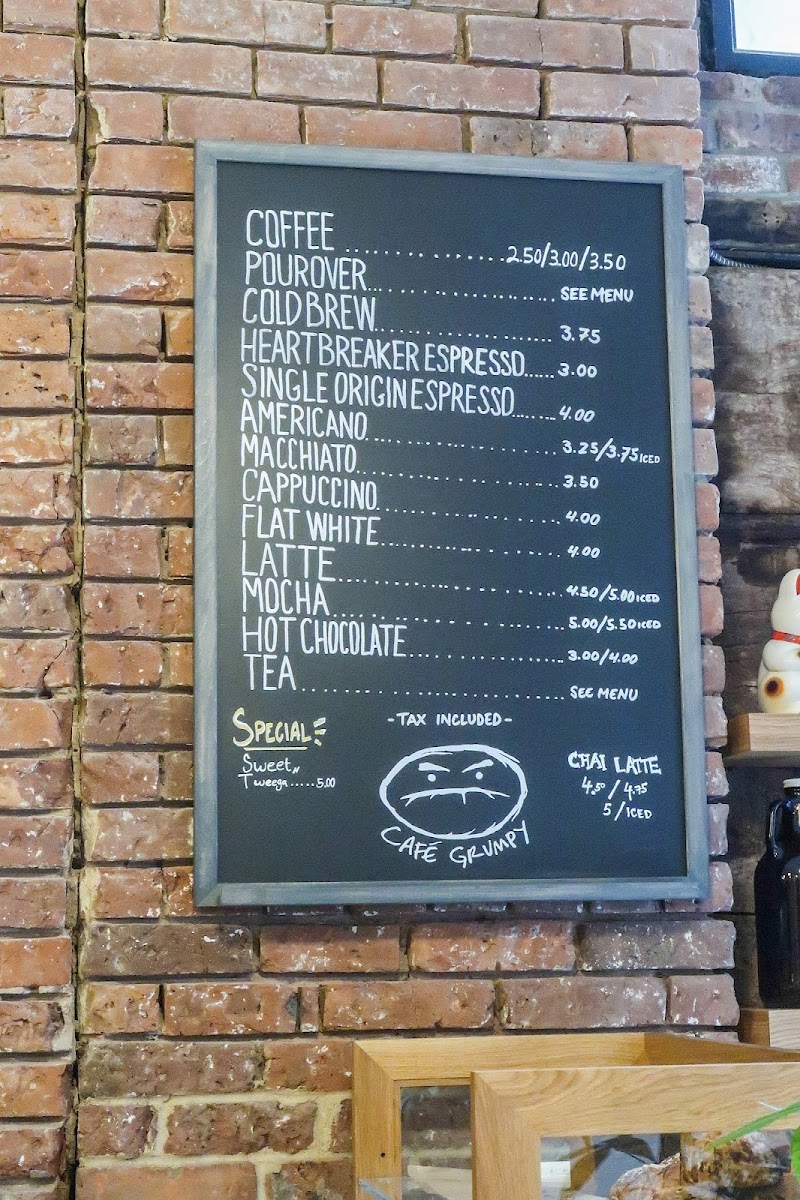 COFFEE ............... 2.50/3.00/3.50
POUROVER ............... SEE MENU
COLD BREW ............... 3.75
HEARTBREAKER ESPRESSO ...... 3.00
SINGLE ORIGIN ESPRESSO ....... 4.00
AMERICANO ............... 3.25/3.75 ICED
MACCHIATO ............... 3.50
CAPPUCCINO ............... 4.00
FLAT WHITE ............... 4.00
LATTE ............... 4.50/5.00 ICED
MOCHA ............... 5.00/5.50 ICED
HOT CHOCOLATE ............... 3.00/4.00
TEA ............... SEE MENU
-TAX INCLUDED-
SPECIAL
Sweet
Tweega ..... 5.00
CAFÉ GRUMPY
CHAI LATTE
4.50 / 4.75
5 / ICED